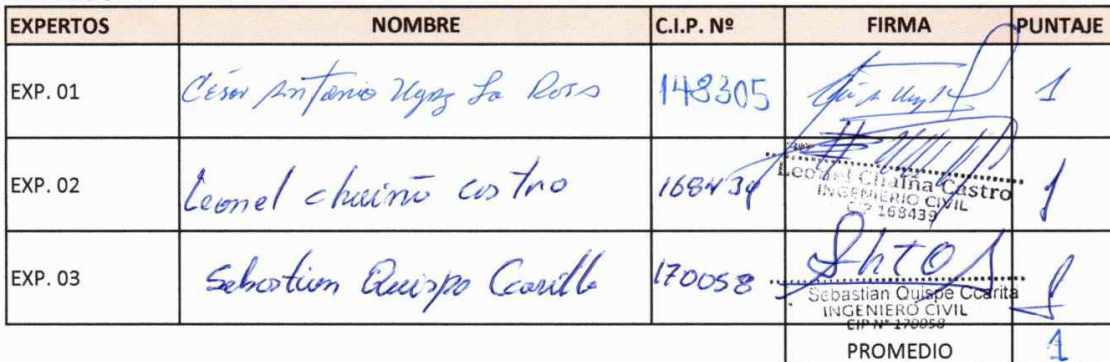 EXPERTOS NOMBRE C.I.P. Nº FIRMA PUNTAJE
EXP. 01 César Antonio Ugaz La Rosa 148305 1
EXP. 02 Leonel chaiña castro 168439 1
Leonel Chaiña Castro
INGENIERIO CIVIL
CIP 168439
EXP. 03 Sebastian Quispe Ccarita 170058 1
Sebastian Quispe Ccarita
INGENIERO CIVIL
CIP Nº 170058
PROMEDIO 1